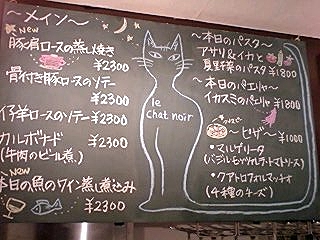 ～メイン～
New
豚肩ロースの蒸し焼き
¥2300
骨付き豚ロースのソテー
¥2300
仔羊ロースのソテー
¥2300
カルボナード
(牛肉のビール煮)
¥2300
New
本日の魚のワイン蒸し煮込み
¥2300
le
chat noir
～本日のパスタ～
アサリ&イカと
夏野菜のパスタ ¥1800
～本日のパエリャ～
イカスミのパエリャ
¥1800
～ピザ～ ¥1000
・マルゲリータ
(バジル・モッツァレラ・トマトソース)
・クアトロフォルマッチォ
(4種のチーズ)